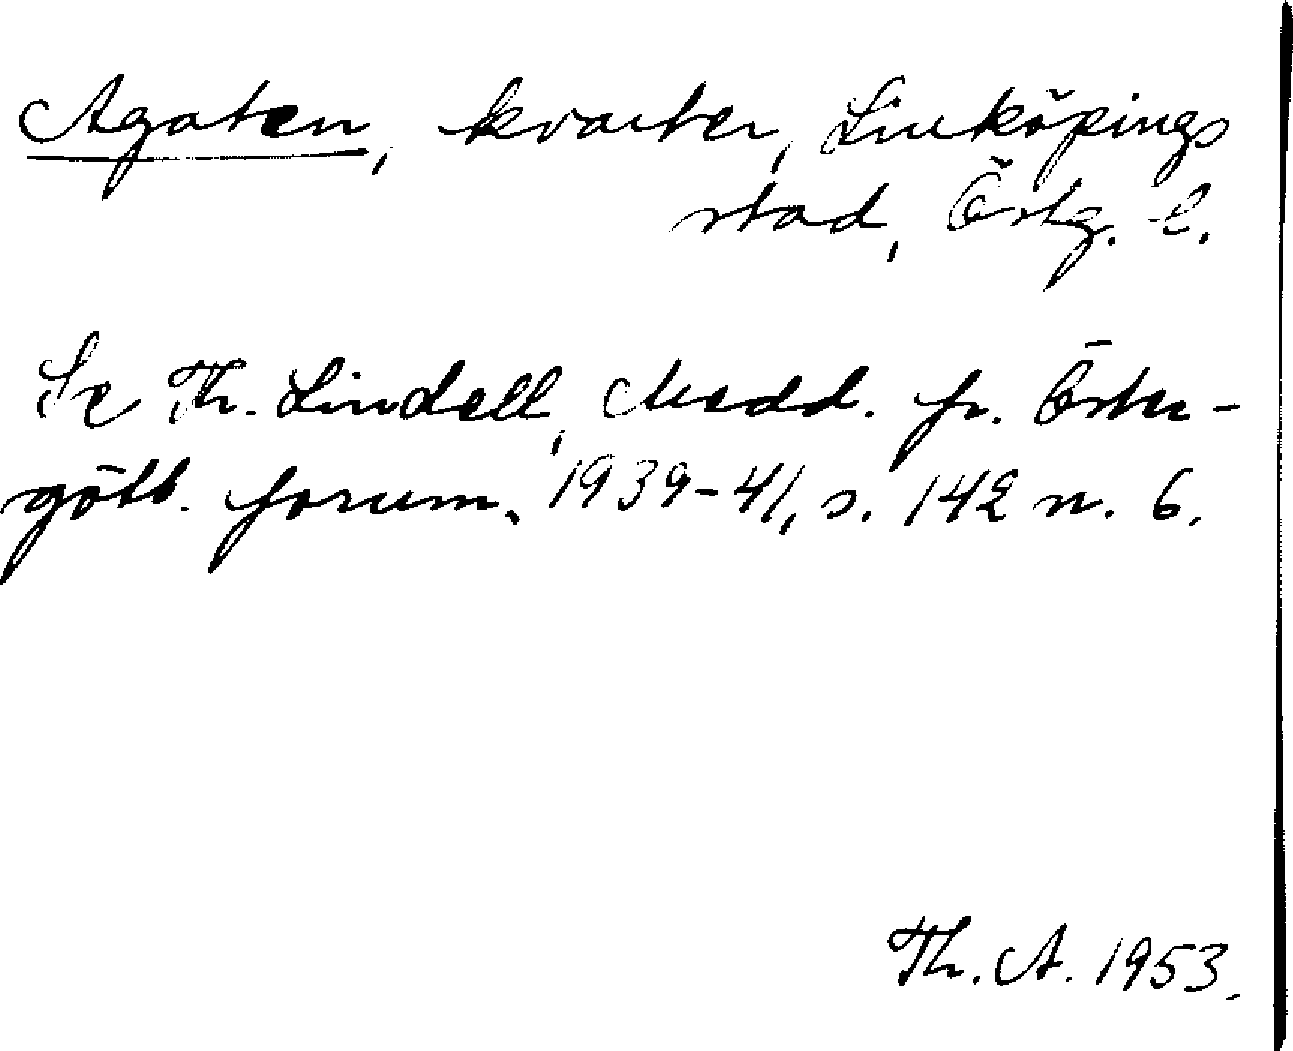 Agaten, kvarter, Linköpings
stad, Östg. l.
Se Th. Lindell, Medd. fr. Öster-
götl. fornm. 1939-41, s. 142 n. 6.
Th. A. 1953.